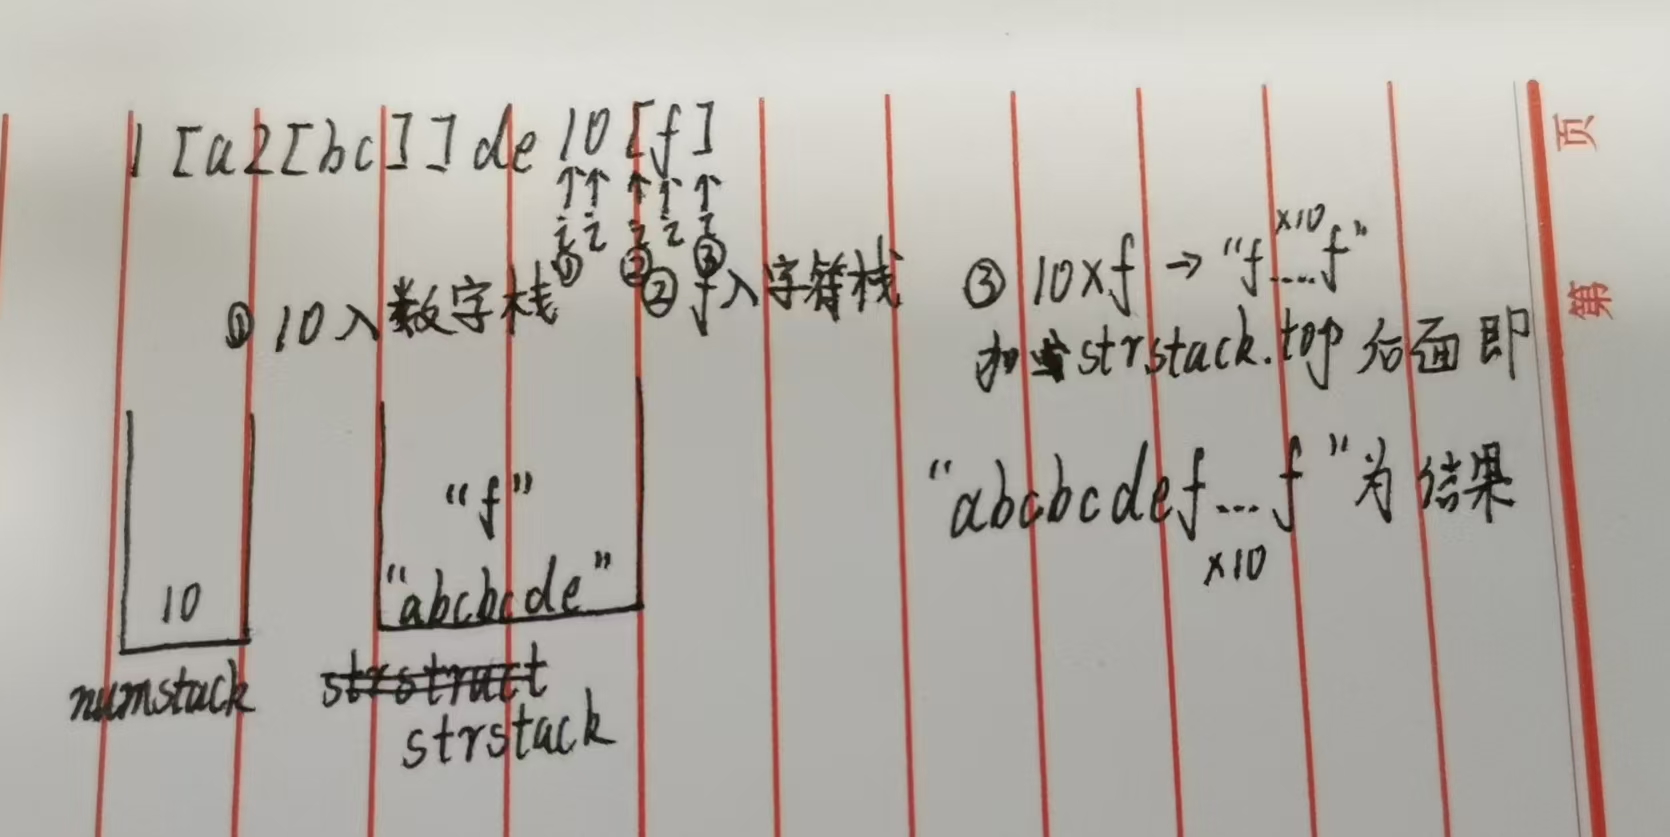 1[a2[bc]]de10[f]
↑↑↑↑↑
i i i i i
① ② ③
① 10入数字栈
② f入字符栈
③ 10×f → “f....f”
×10
加到strstack.top后面即
“abcbcdef...f”为结果
×10
“f”
“abcbcde”
10
numstack
strstruct
strstack
页
第